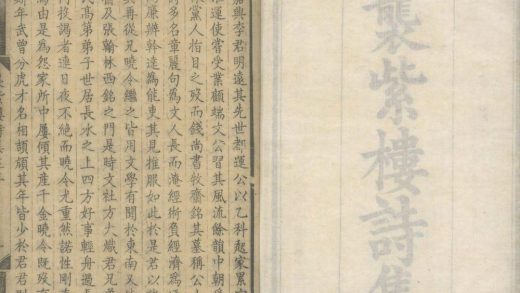 襲紫樓詩集
嘉興李君明遠其先世都運公以乙科起家累
運使嘗受業顧端文公習其風流餘韻中朝
黨人指目之歿而錢尚書牧齋銘其墓稱公
多名章麗句為文人長而淹經術負經濟為
廉辦幹達為能吏其見推服如此於是君以
再從兄曉令繼之皆用文學有聞於東南又
及張翰林西銘之門是時文社方大熾君兄
氏高第弟子世居長水之上四方好事輕舟過
投謁者連日夜不絕而曉令尤重然諾性剛
為由是為怨家所中屢傾其產千金曉令既歿
年武曾分虎才名相頡頏其年皆少於君君則